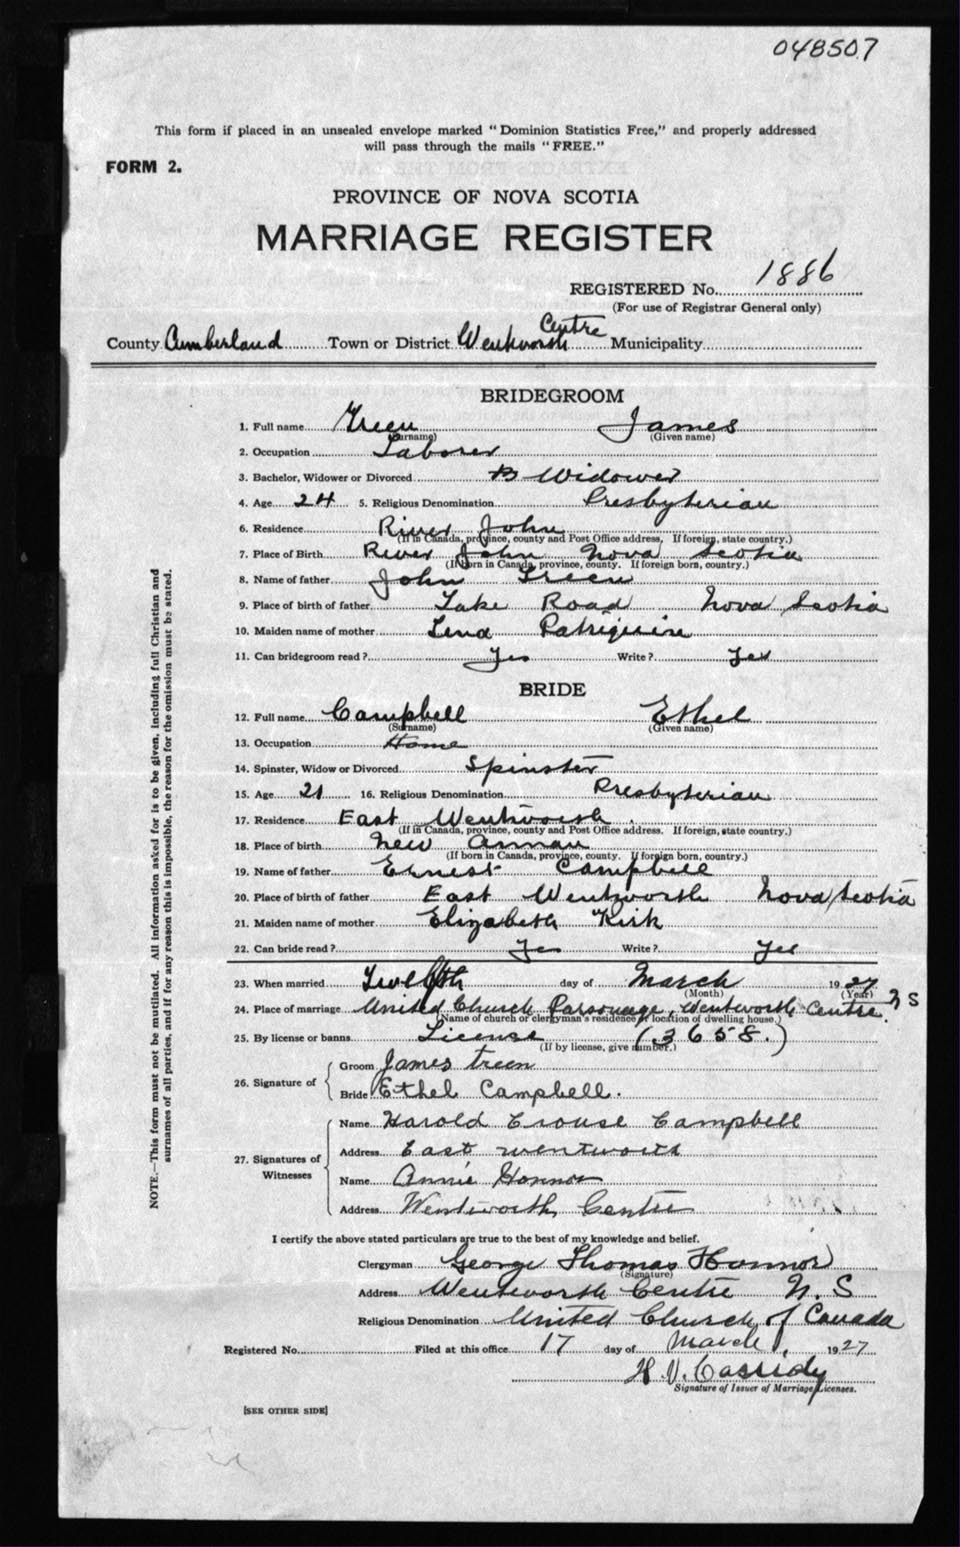 048507
This form if placed in an unsealed envelope marked "Dominion Statistics Free," and properly addressed
will pass through the mails "FREE."
FORM 2.
PROVINCE OF NOVA SCOTIA
MARRIAGE REGISTER
REGISTERED No. 1886
(For use of Registrar General only)
County Cumberland Town or District Wentworth Centre Municipality
BRIDEGROOM
1. Full name Treen James
(Surname) (Given name)
2. Occupation Laborer
3. Bachelor, Widower or Divorced Widower
4. Age 24 5. Religious Denomination Presbyterian
6. Residence River John
(If in Canada, province, county and Post Office address. If foreign, state country.)
7. Place of Birth River John Nova Scotia
(If born in Canada, province, county. If foreign born, country.)
8. Name of father John Treen
9. Place of birth of father Lake Road Nova Scotia
10. Maiden name of mother Lena Patriquin
11. Can bridegroom read? Yes Write? Yes
BRIDE
12. Full name Campbell Ethel
(Surname) (Given name)
13. Occupation Home
14. Spinster, Widow or Divorced Spinster
15. Age 21 16. Religious Denomination Presbyterian
17. Residence East Wentworth
(If in Canada, province, county and Post Office address. If foreign, state country.)
18. Place of birth New Annan
(If born in Canada, province, county. If foreign born, country.)
19. Name of father Ernest Campbell
20. Place of birth of father East Wentworth Nova Scotia
21. Maiden name of mother Elizabeth Kirk
22. Can bride read? Yes Write? Yes
23. When married Twelfth day of March 1927
(Month) (Year)
24. Place of marriage United Church Parsonage, Wentworth Centre. N S
(Name of church or clergyman's residence or location of dwelling house.)
25. By license or banns License (3658.)
(If by license, give number.)
26. Signature of
Groom James Treen
Bride Ethel Campbell.
27. Signatures of Witnesses
Name Harold Crouse Campbell
Address East Wentworth
Name Annie Honnor
Address Wentworth Centre
I certify the above stated particulars are true to the best of my knowledge and belief.
Clergyman George Thomas Honnor
(Signature)
Address Wentworth Centre N. S
Religious Denomination United Church of Canada
Registered No. Filed at this office 17 day of March 1927
H. V. Cassidy
Signature of Issuer of Marriage Licenses.
[SEE OTHER SIDE]
NOTE.—This form must not be mutilated. All information asked for is to be given, including full Christian and
surnames of all parties, and if for any reason this is impossible, the reason for the omission must be stated.